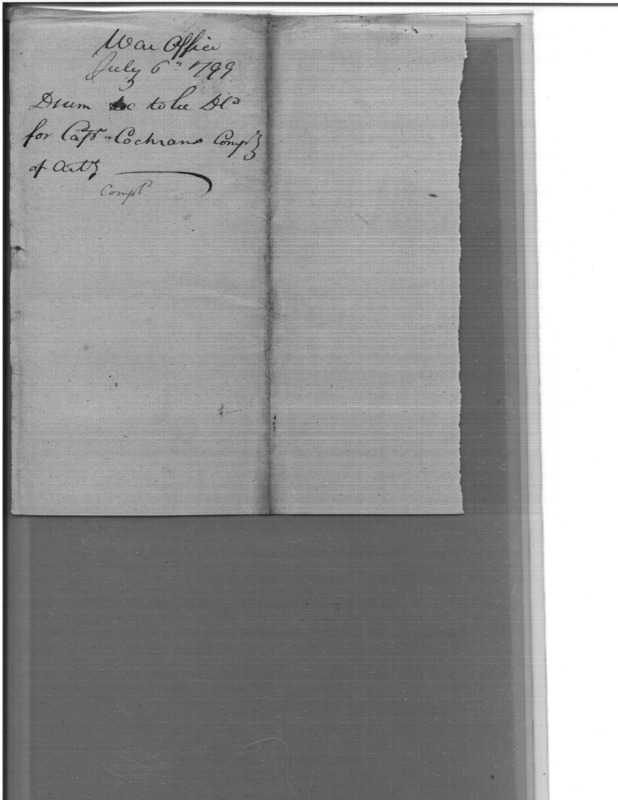 War Office
July 6th 1799
Drum &c to be Dld
for Capt Cochrans Compy
of Arty
Compd